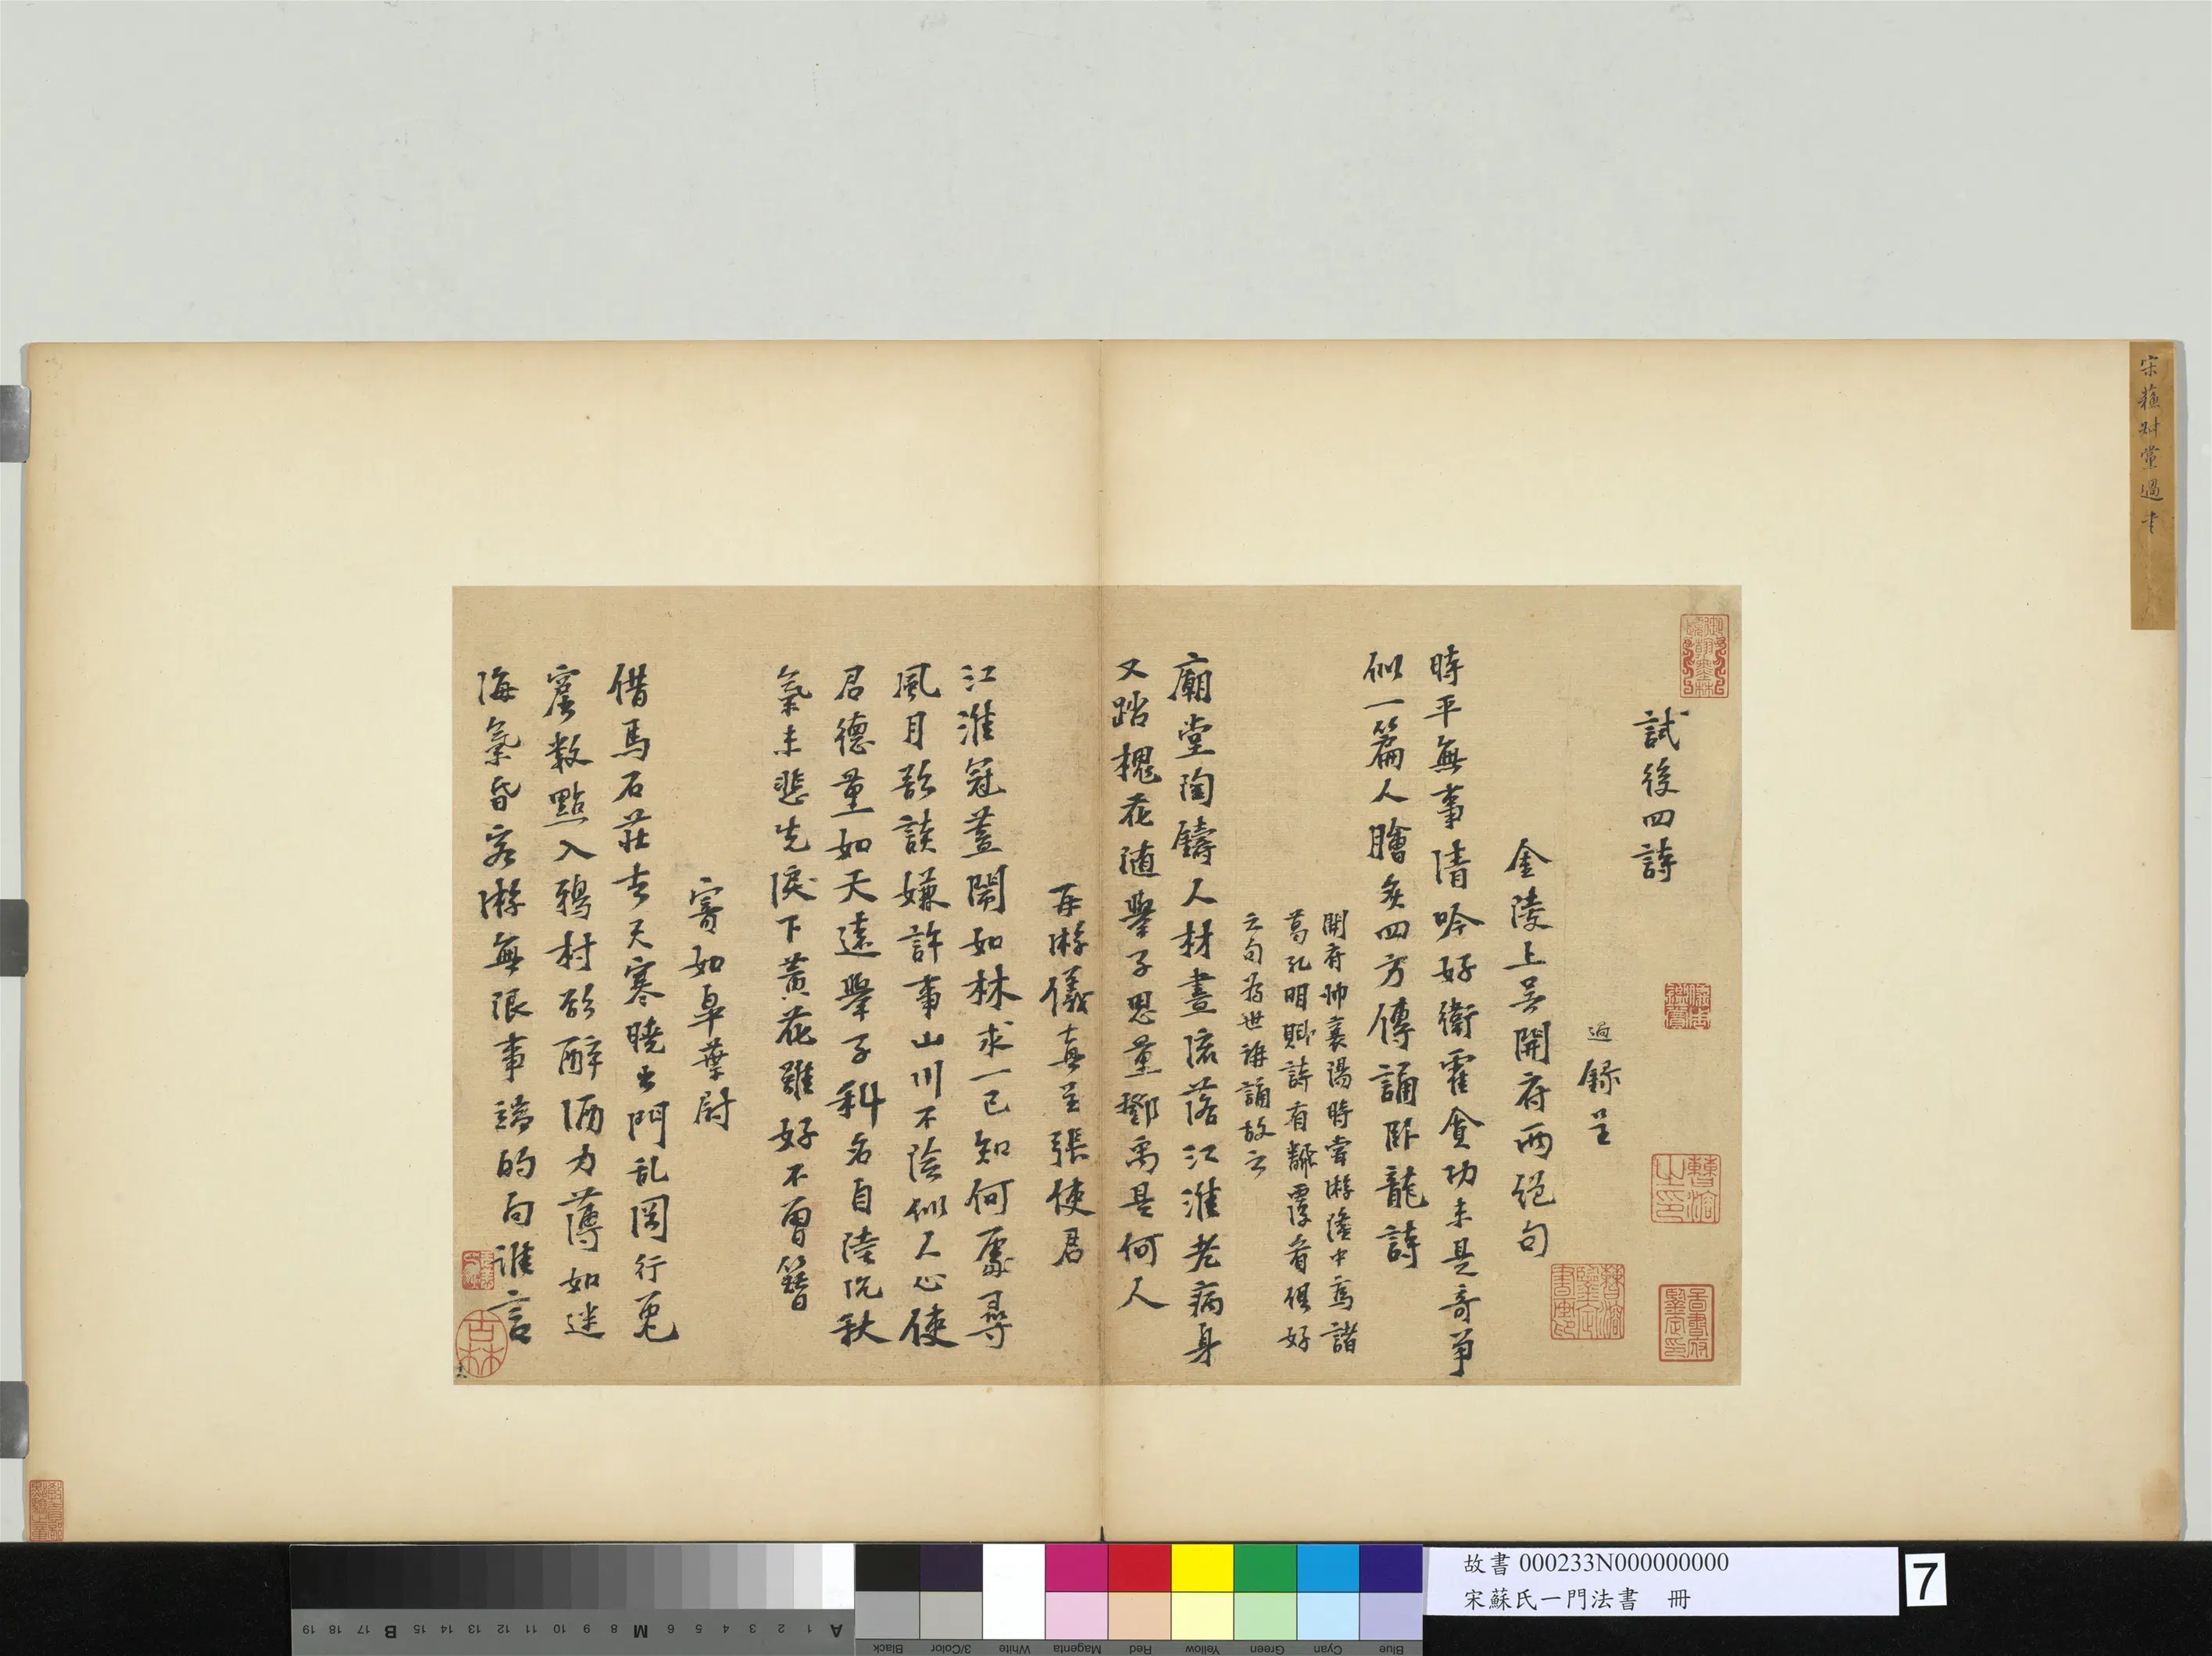 宋蘇叔黨過書
試後四詩
過錄呈
金陵上吳開府兩絕句
時平無事清吟好衛霍貪功未是奇爭
似一篇人膾炙四方傳誦臥龍詩
開府帥襄陽時嘗游隆中為諸
葛孔明賦詩有
云句為世誦故云
廟堂陶鑄人材盡流落江淮老病身
又踏槐花隨舉子思量鄧禹是何人
再游儀真呈張使君
江淮冠蓋鬧如林求一已知何處尋
風月飲談嫌許事山川不險似人心使
君德量如天遠舉子科名自陸沉秋
氣未悲先淚下黃花雖好不曾簪
寄如皋葉尉
借馬石莊去天寒曉出門亂岡行兔
窟數點入鴉村欲醉酒力薄如迷
海氣昏客游無限事端的向誰言
古林
故書 000233N000000000
宋蘇氏一門法書　冊
7
A 1 2 3 4 5 6 7 8 M 9 10 11 12 13 14 15 B 17 18 19
Blue Cyan Green Yellow Red Magenta White 3/Color Black